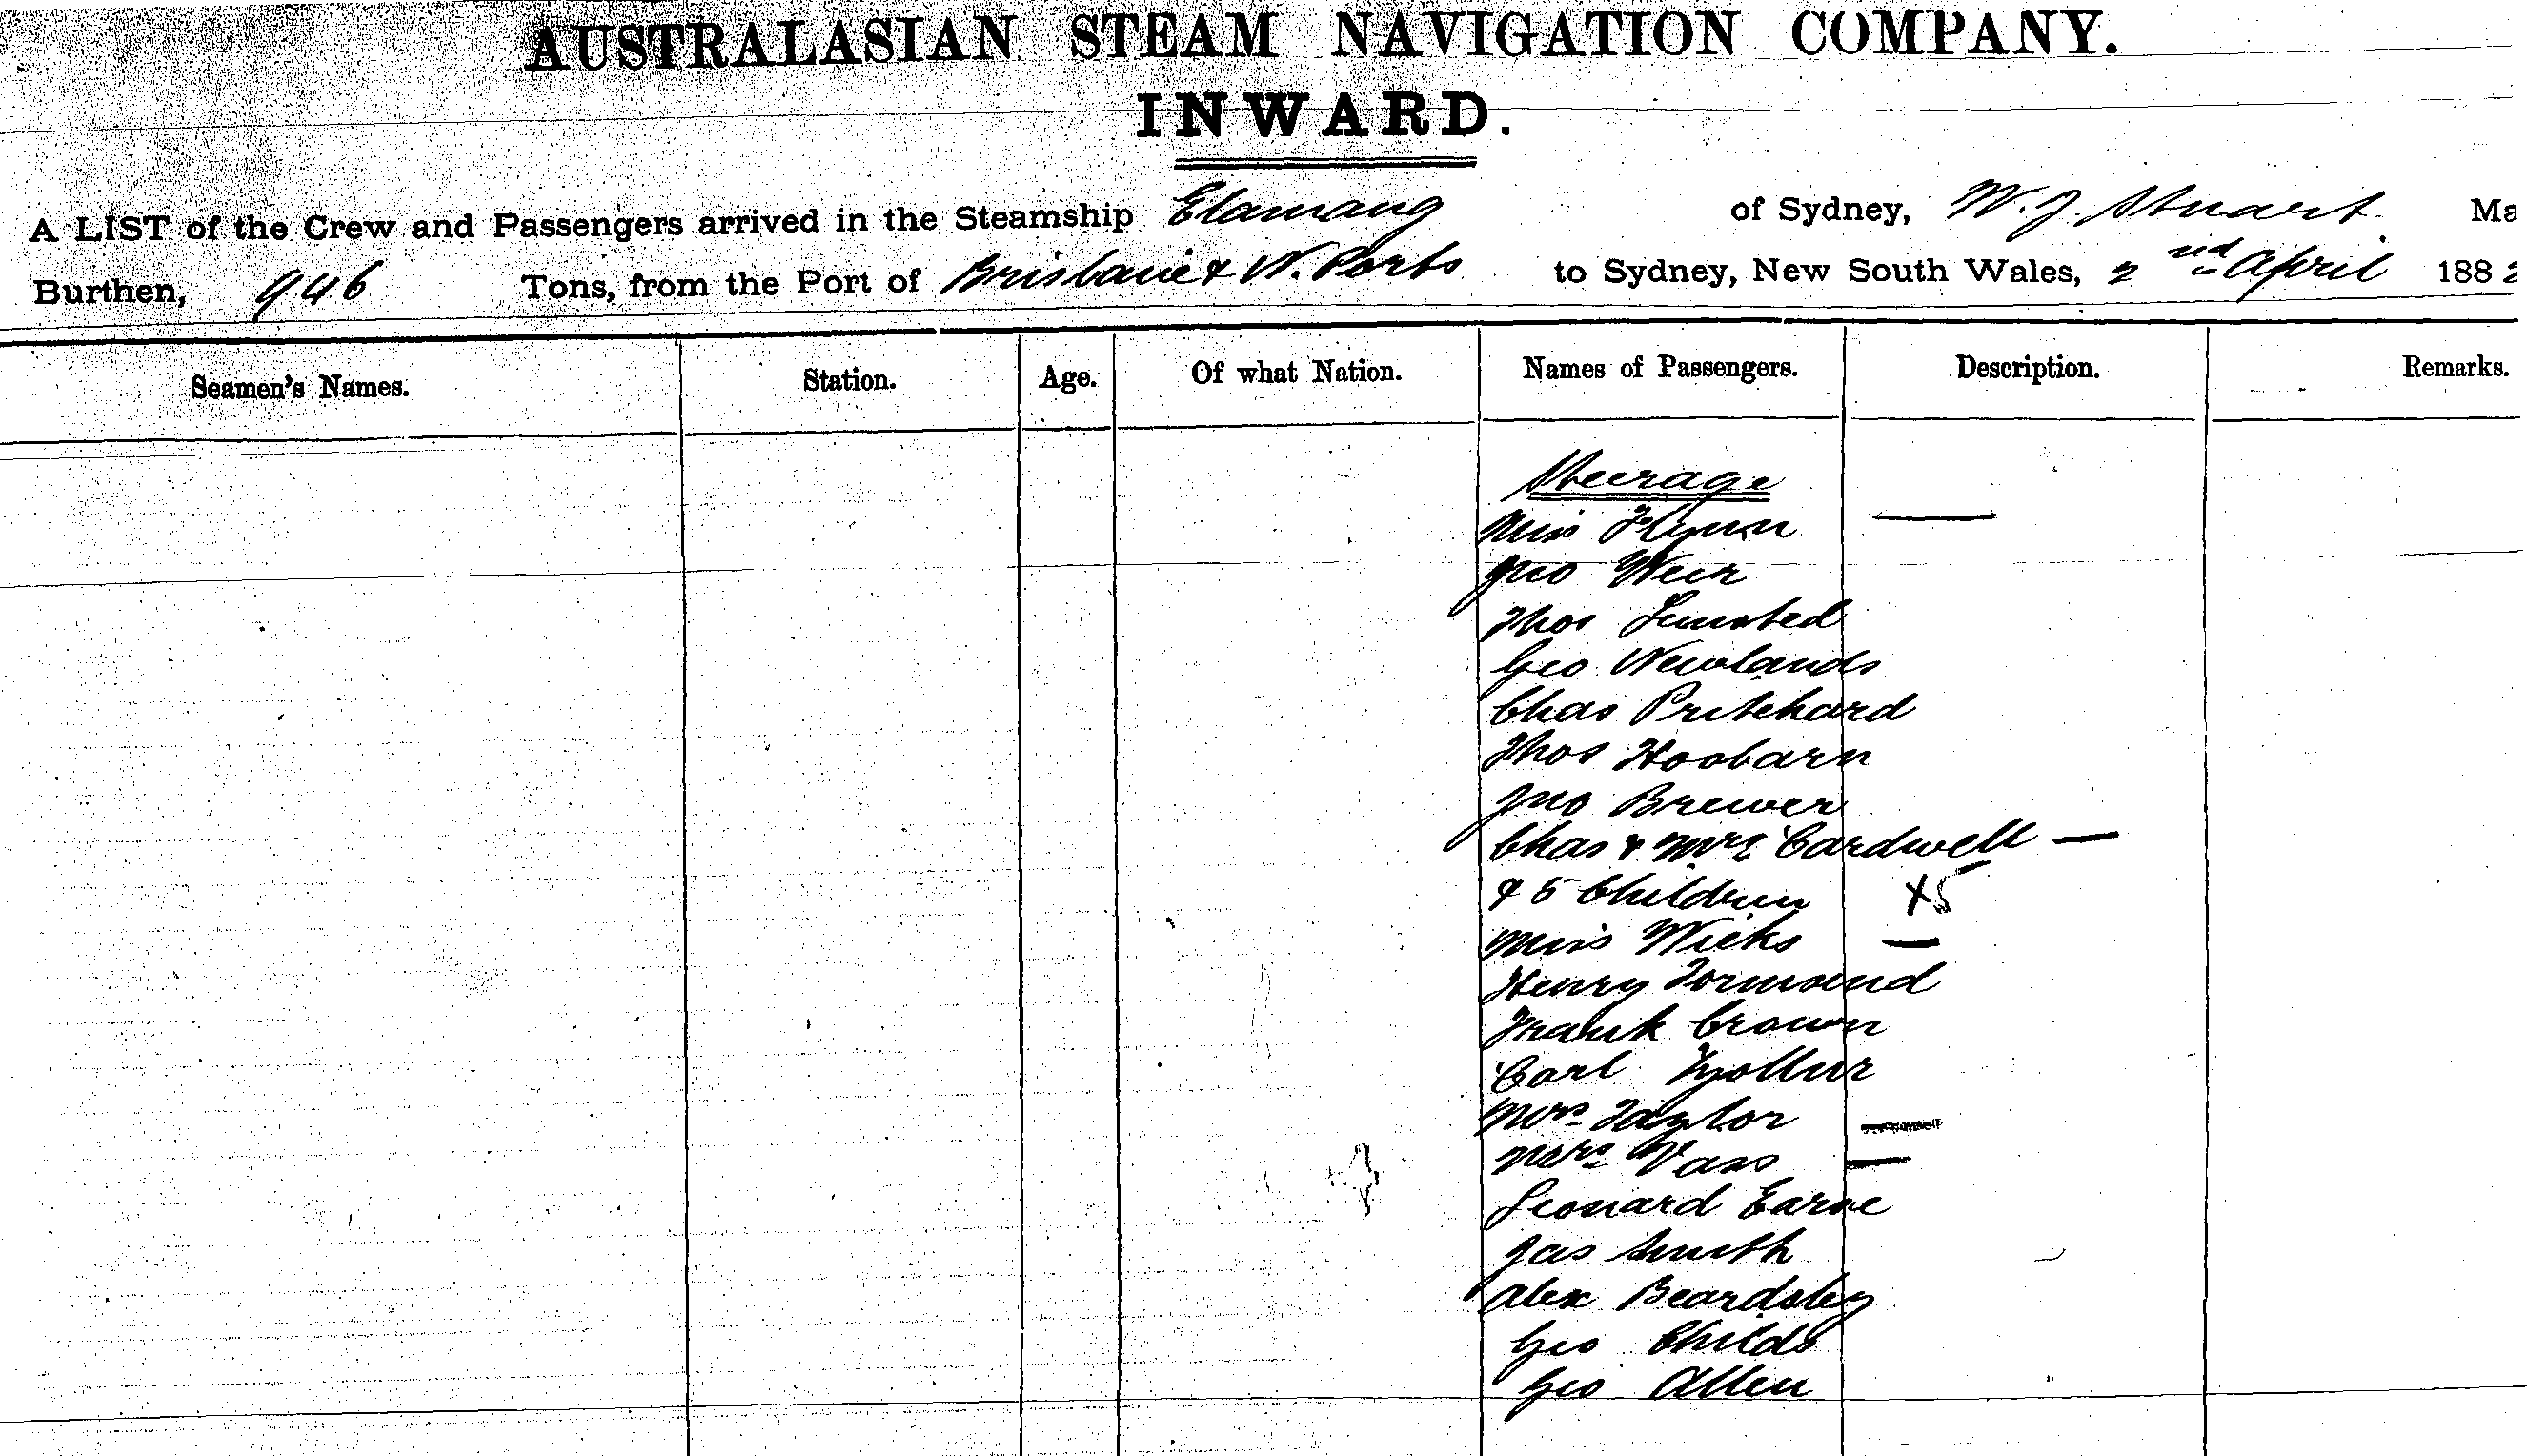 AUSTRALASIAN STEAM NAVIGATION COMPANY.
INWARD.
A LIST of the Crew and Passengers arrived in the Steamship Elamang of Sydney, W. J. Stuart Ma
Burthen, 946 Tons, from the Port of Brisbane & N. Ports to Sydney, New South Wales, 2nd April 1882
Seamen's Names. Station. Age. Of what Nation. Names of Passengers. Description. Remarks.
Steerage
Miss Flynn —
Jno Weir
Thos
Geo Newlands
Chas Pritchard
Thos Hoobarn
Jno Brewer
Chas & Mrs Cardwell —
& 5 Children X5
Miss Wicks —
Henry Tormund
Frank Crown
Carl
Mrs Taylor —
Mrs Vass —
Leonard Earne
Jas Smith
Alex Beardsley
Geo Childs
Geo Allen